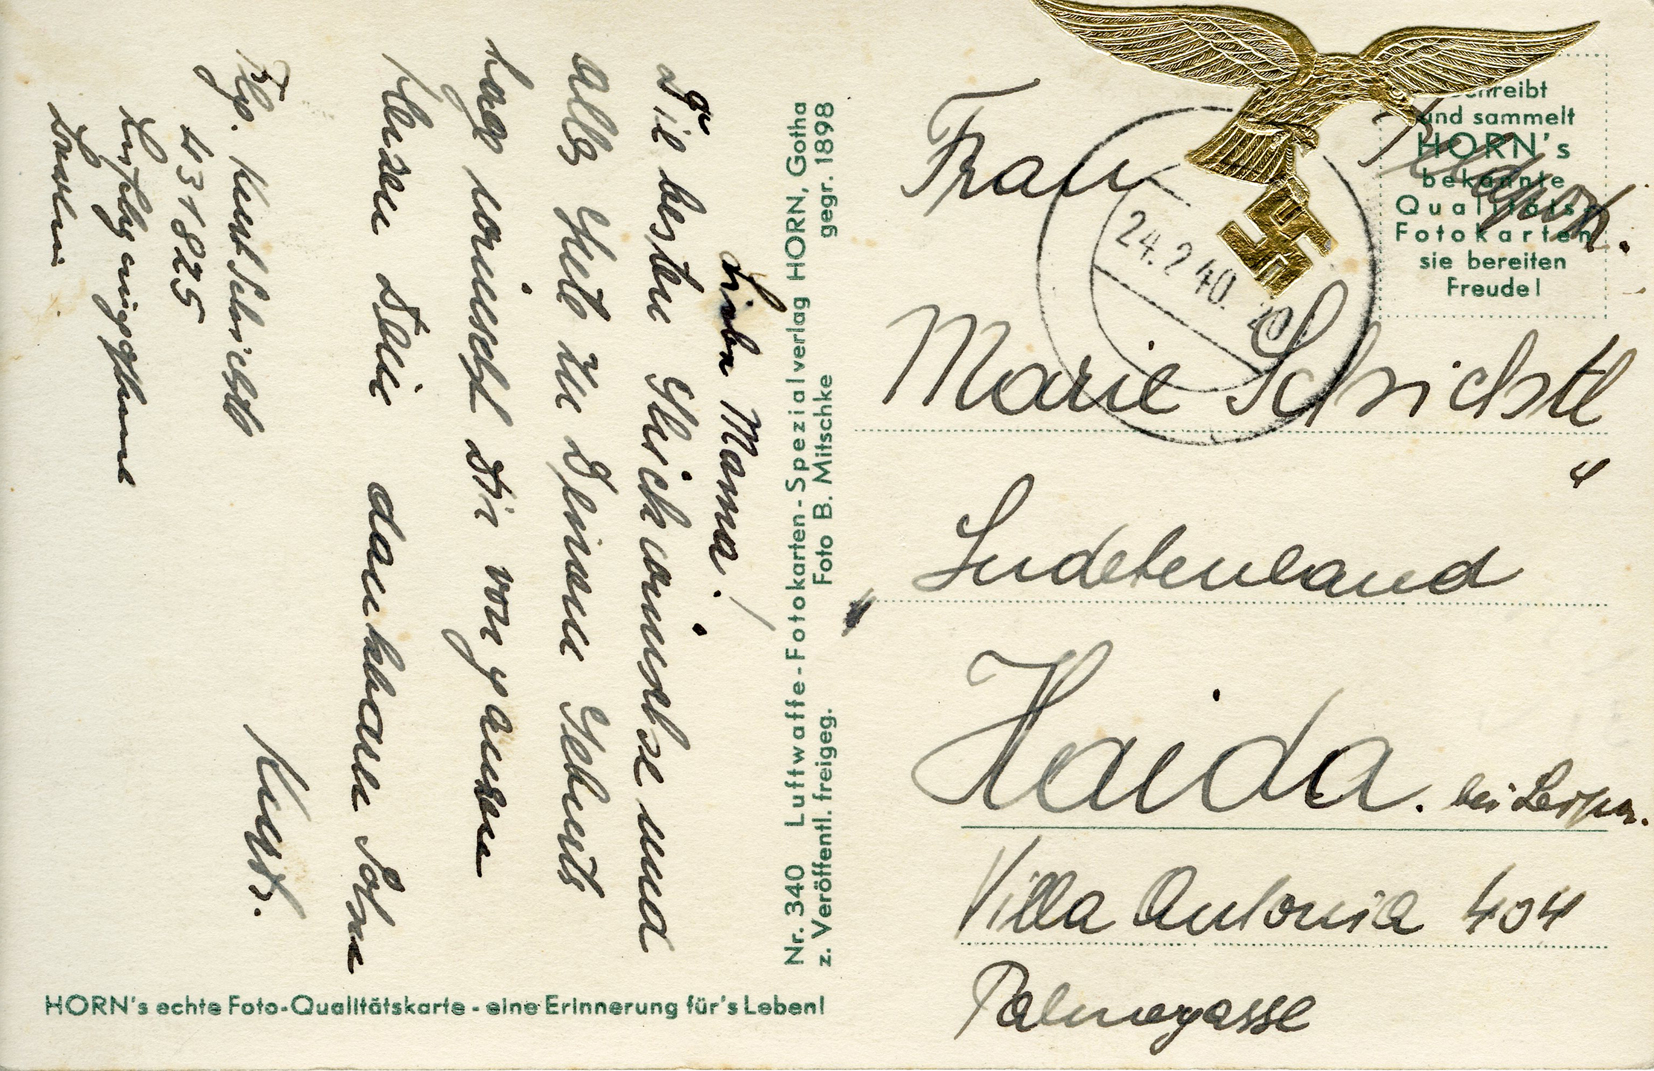 Liebe Mama!
Die besten Glückwünsche und
alles Gute zu Deinem Geburts
tage wünscht Dir von ganzem
Herzen Dein dankbarer Sohn
Kurt.
Flg. Kurt Schicktl
431825
Nr. 340 Luftwaffe-Fotokarten-Spezialverlag HORN, Gotha
z. Veröffentl. freigeg. Foto B. Mitschke gegr. 1898
HORN's echte Foto-Qualitätskarte - eine Erinnerung für's Leben!
Feldpost.
schreibt
und sammelt
HORN's
bekannte
Qualitäts-
Fotokarten
sie bereiten
Freude!
24.2.40.
Frau
Marie Schichtl
Sudetenland
Haida. bei
Villa Antonia 404
Palmegasse